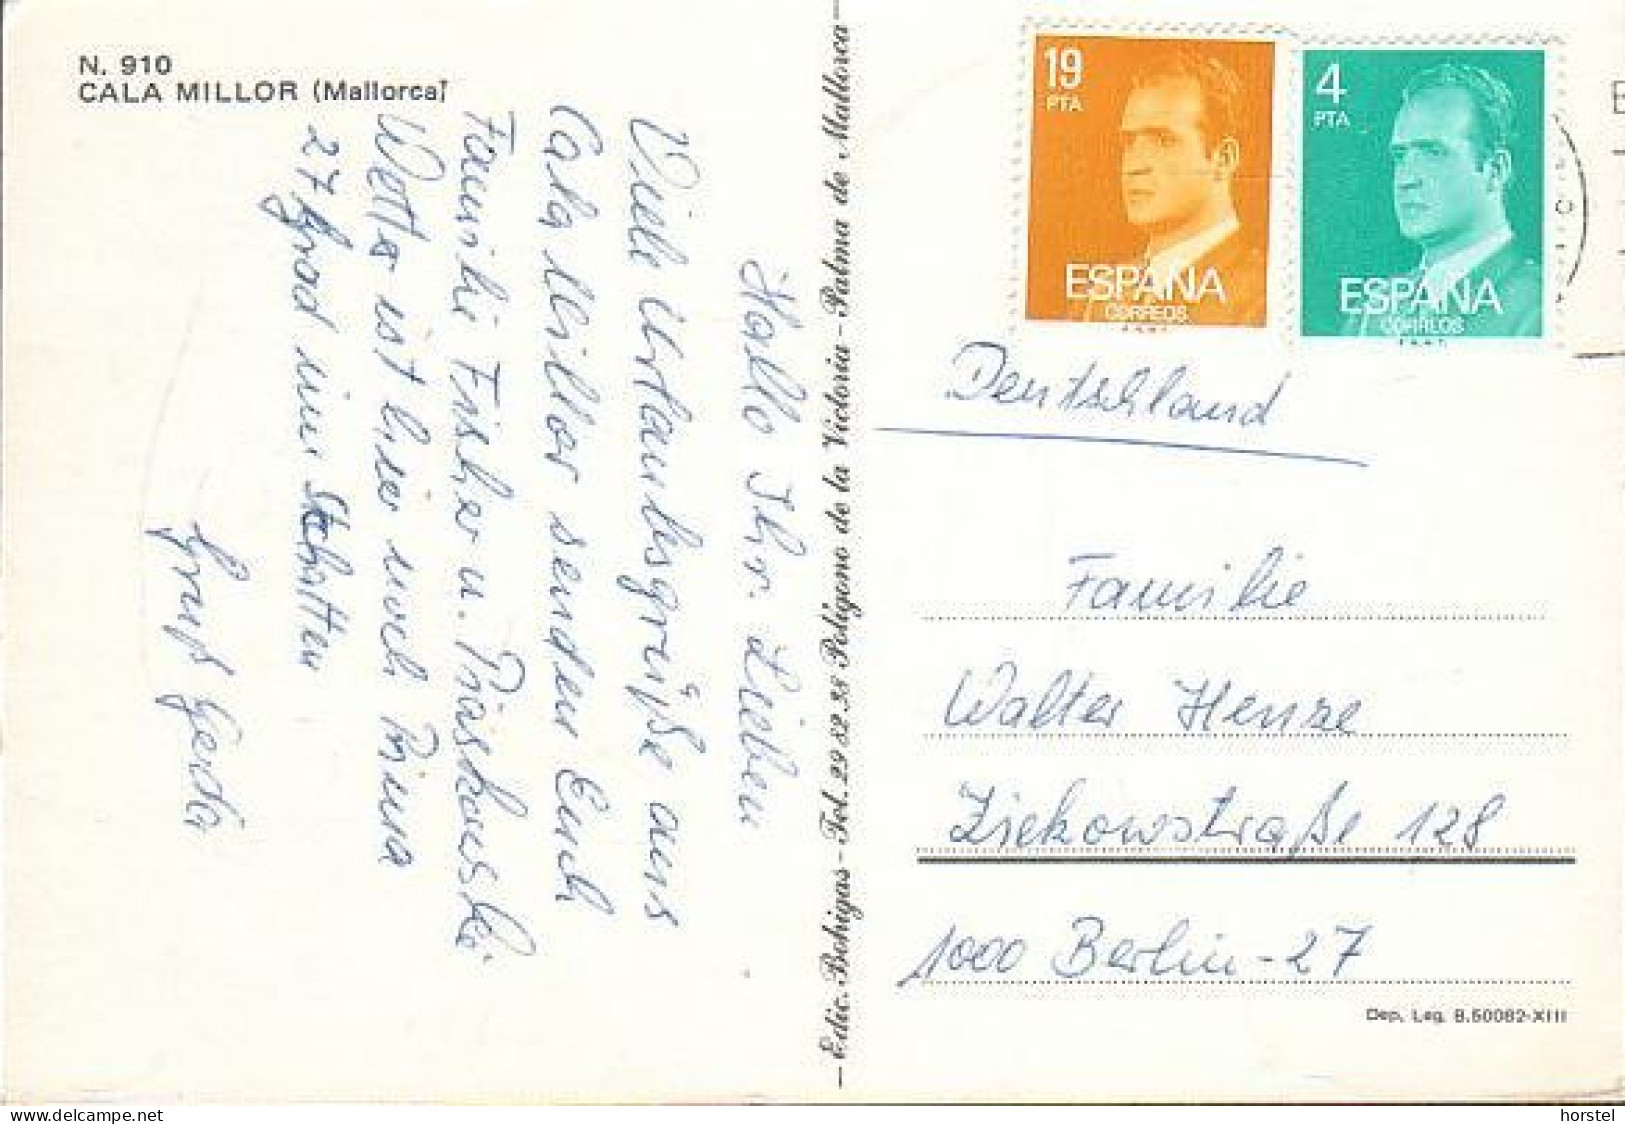 N. 910
CALA MILLOR (Mallorca)
Hallo Ihr. Lieben
Viele Urlaubsgrüße aus
Cala Millor senden Euch
Familie Fischer u.
Wetter ist hier noch Prima
27 Grad im Schatten
Gruß Gerda
Edic. Bohigas - Tel. 29 82 38 Poligono de la Victoria - Palma de Mallorca
19
PTA
ESPAÑA
CORREOS
4
PTA
ESPAÑA
CORREOS
Deutschland
Familie
Walter Henze
Ziekowstraße 128
1000 Berlin-27
Dep. Leg. B.50082-XIII
www.delcampe.net
horstel